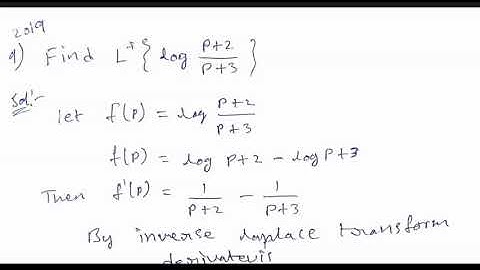 2019
q) Find L⁻¹{log (p+2)/(p+3)}
Sol:-
let f(p) = log (p+2)/(p+3)
f(p) = log p+2 - log p+3
Then f'(p) = 1/(p+2) - 1/(p+3)
By inverse laplace transform